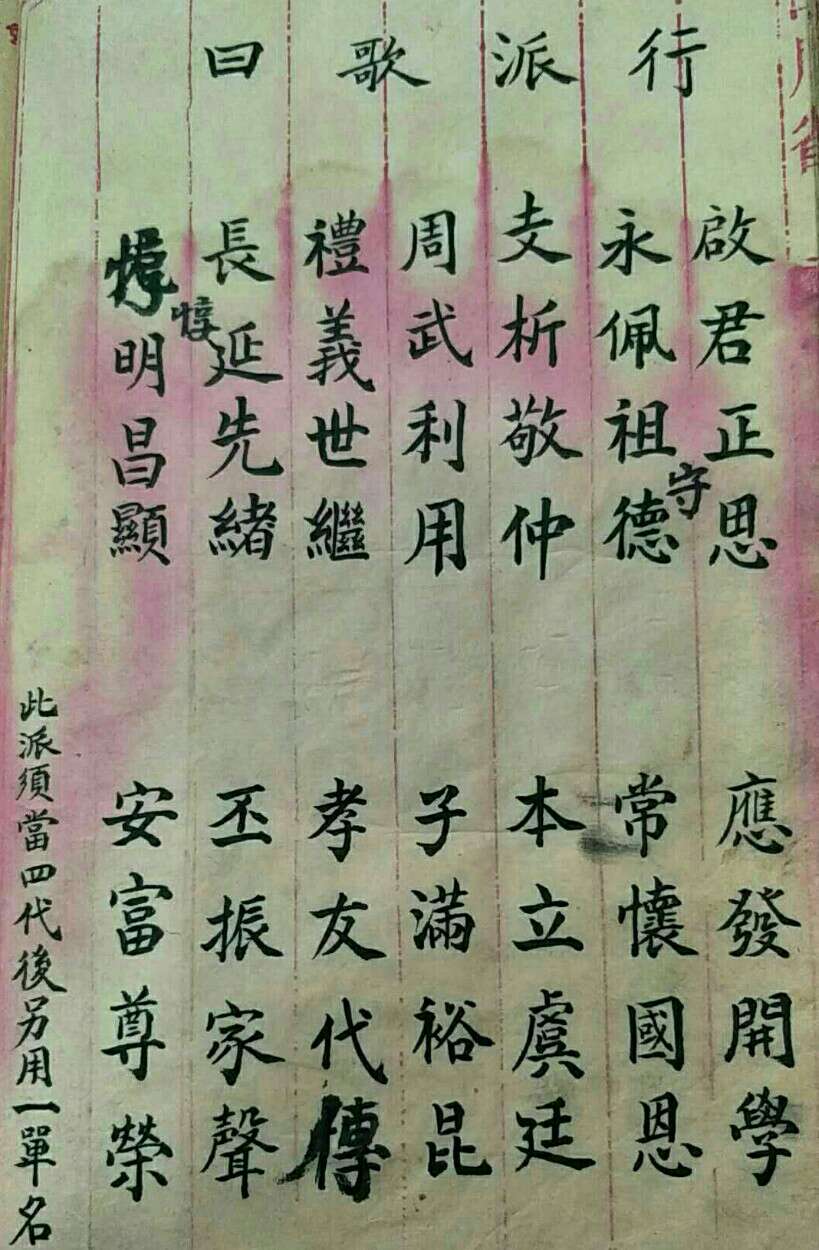 行派歌曰
啟君正思 應發開學
守
永佩祖德 常懷國恩
支析敬仲 本立虞廷
周武利用 子滿裕昆
禮義世繼 孝友代傳
長延先緒 丕振家聲
惇
明昌顯 安富尊榮
此派須當四代後另用一單名